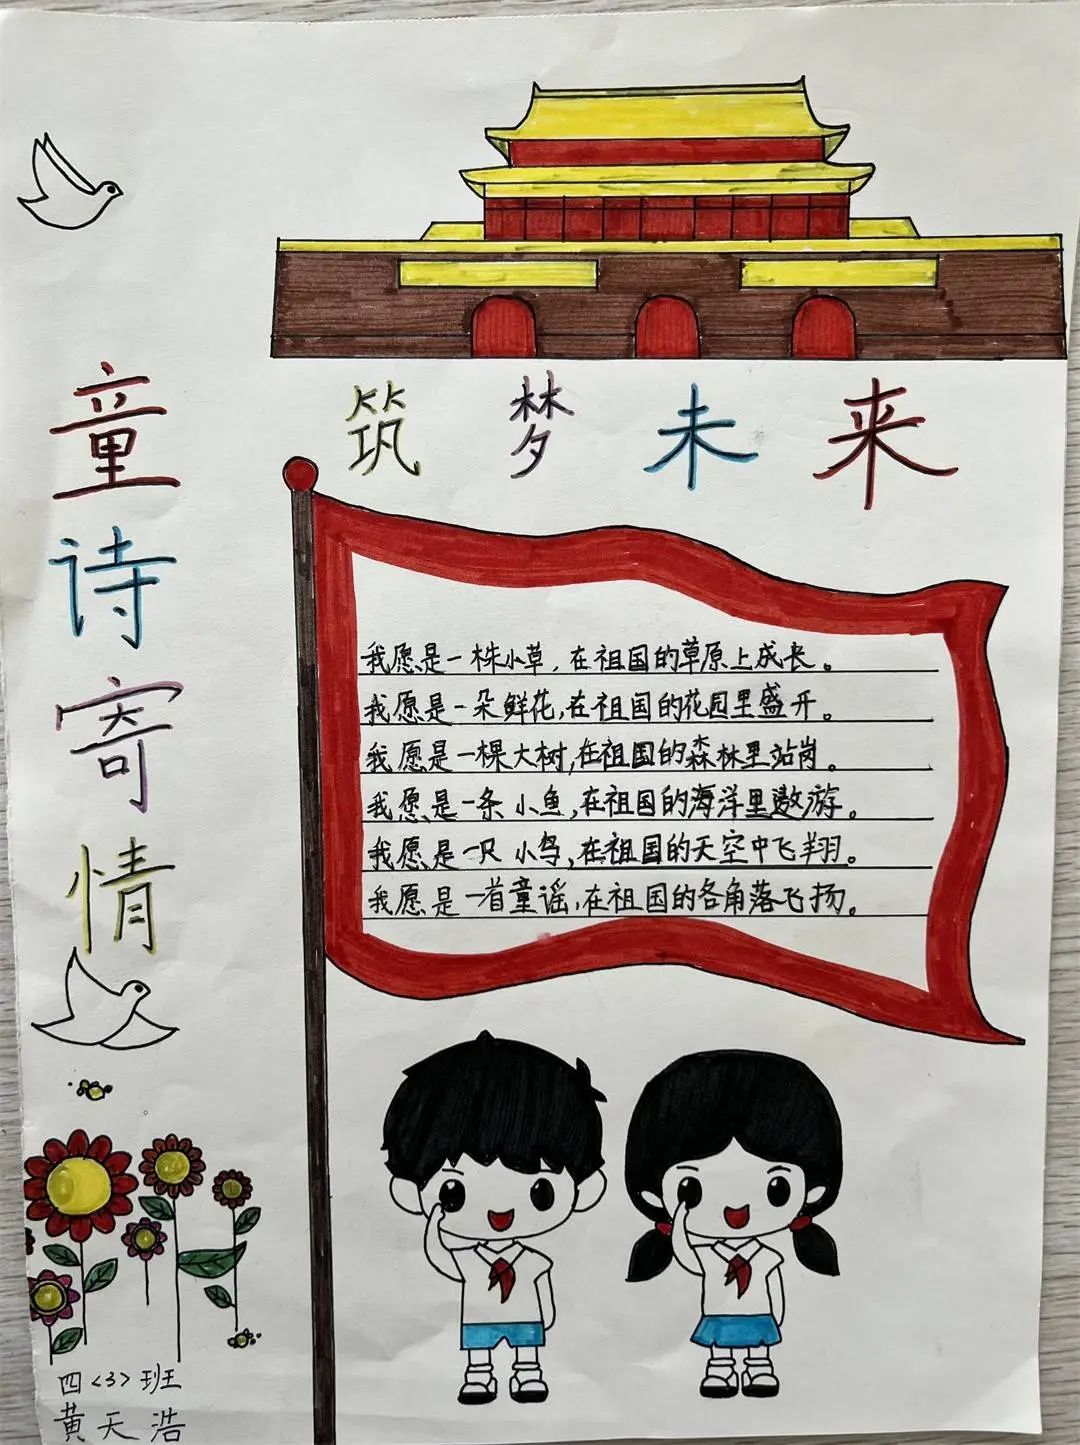 童诗寄情
筑梦未来
我愿是一株小草，在祖国的草原上成长。
我愿是一朵鲜花，在祖国的花园里盛开。
我愿是一棵大树，在祖国的森林里站岗。
我愿是一条小鱼，在祖国的海洋里遨游。
我愿是一只小鸟，在祖国的天空中飞翔。
我愿是一首童谣，在祖国的各角落飞扬。
四<3>班
黄天浩